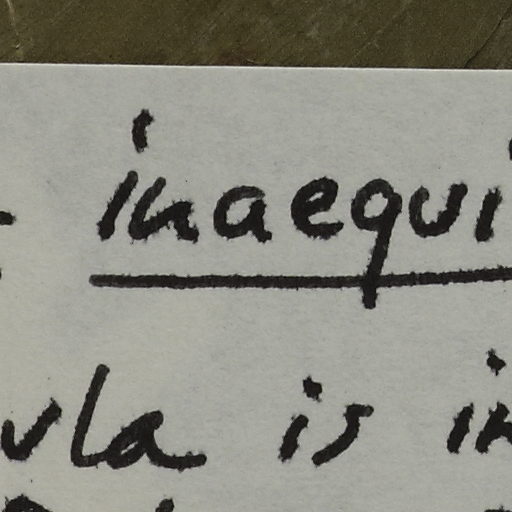 inaequi
ula is in